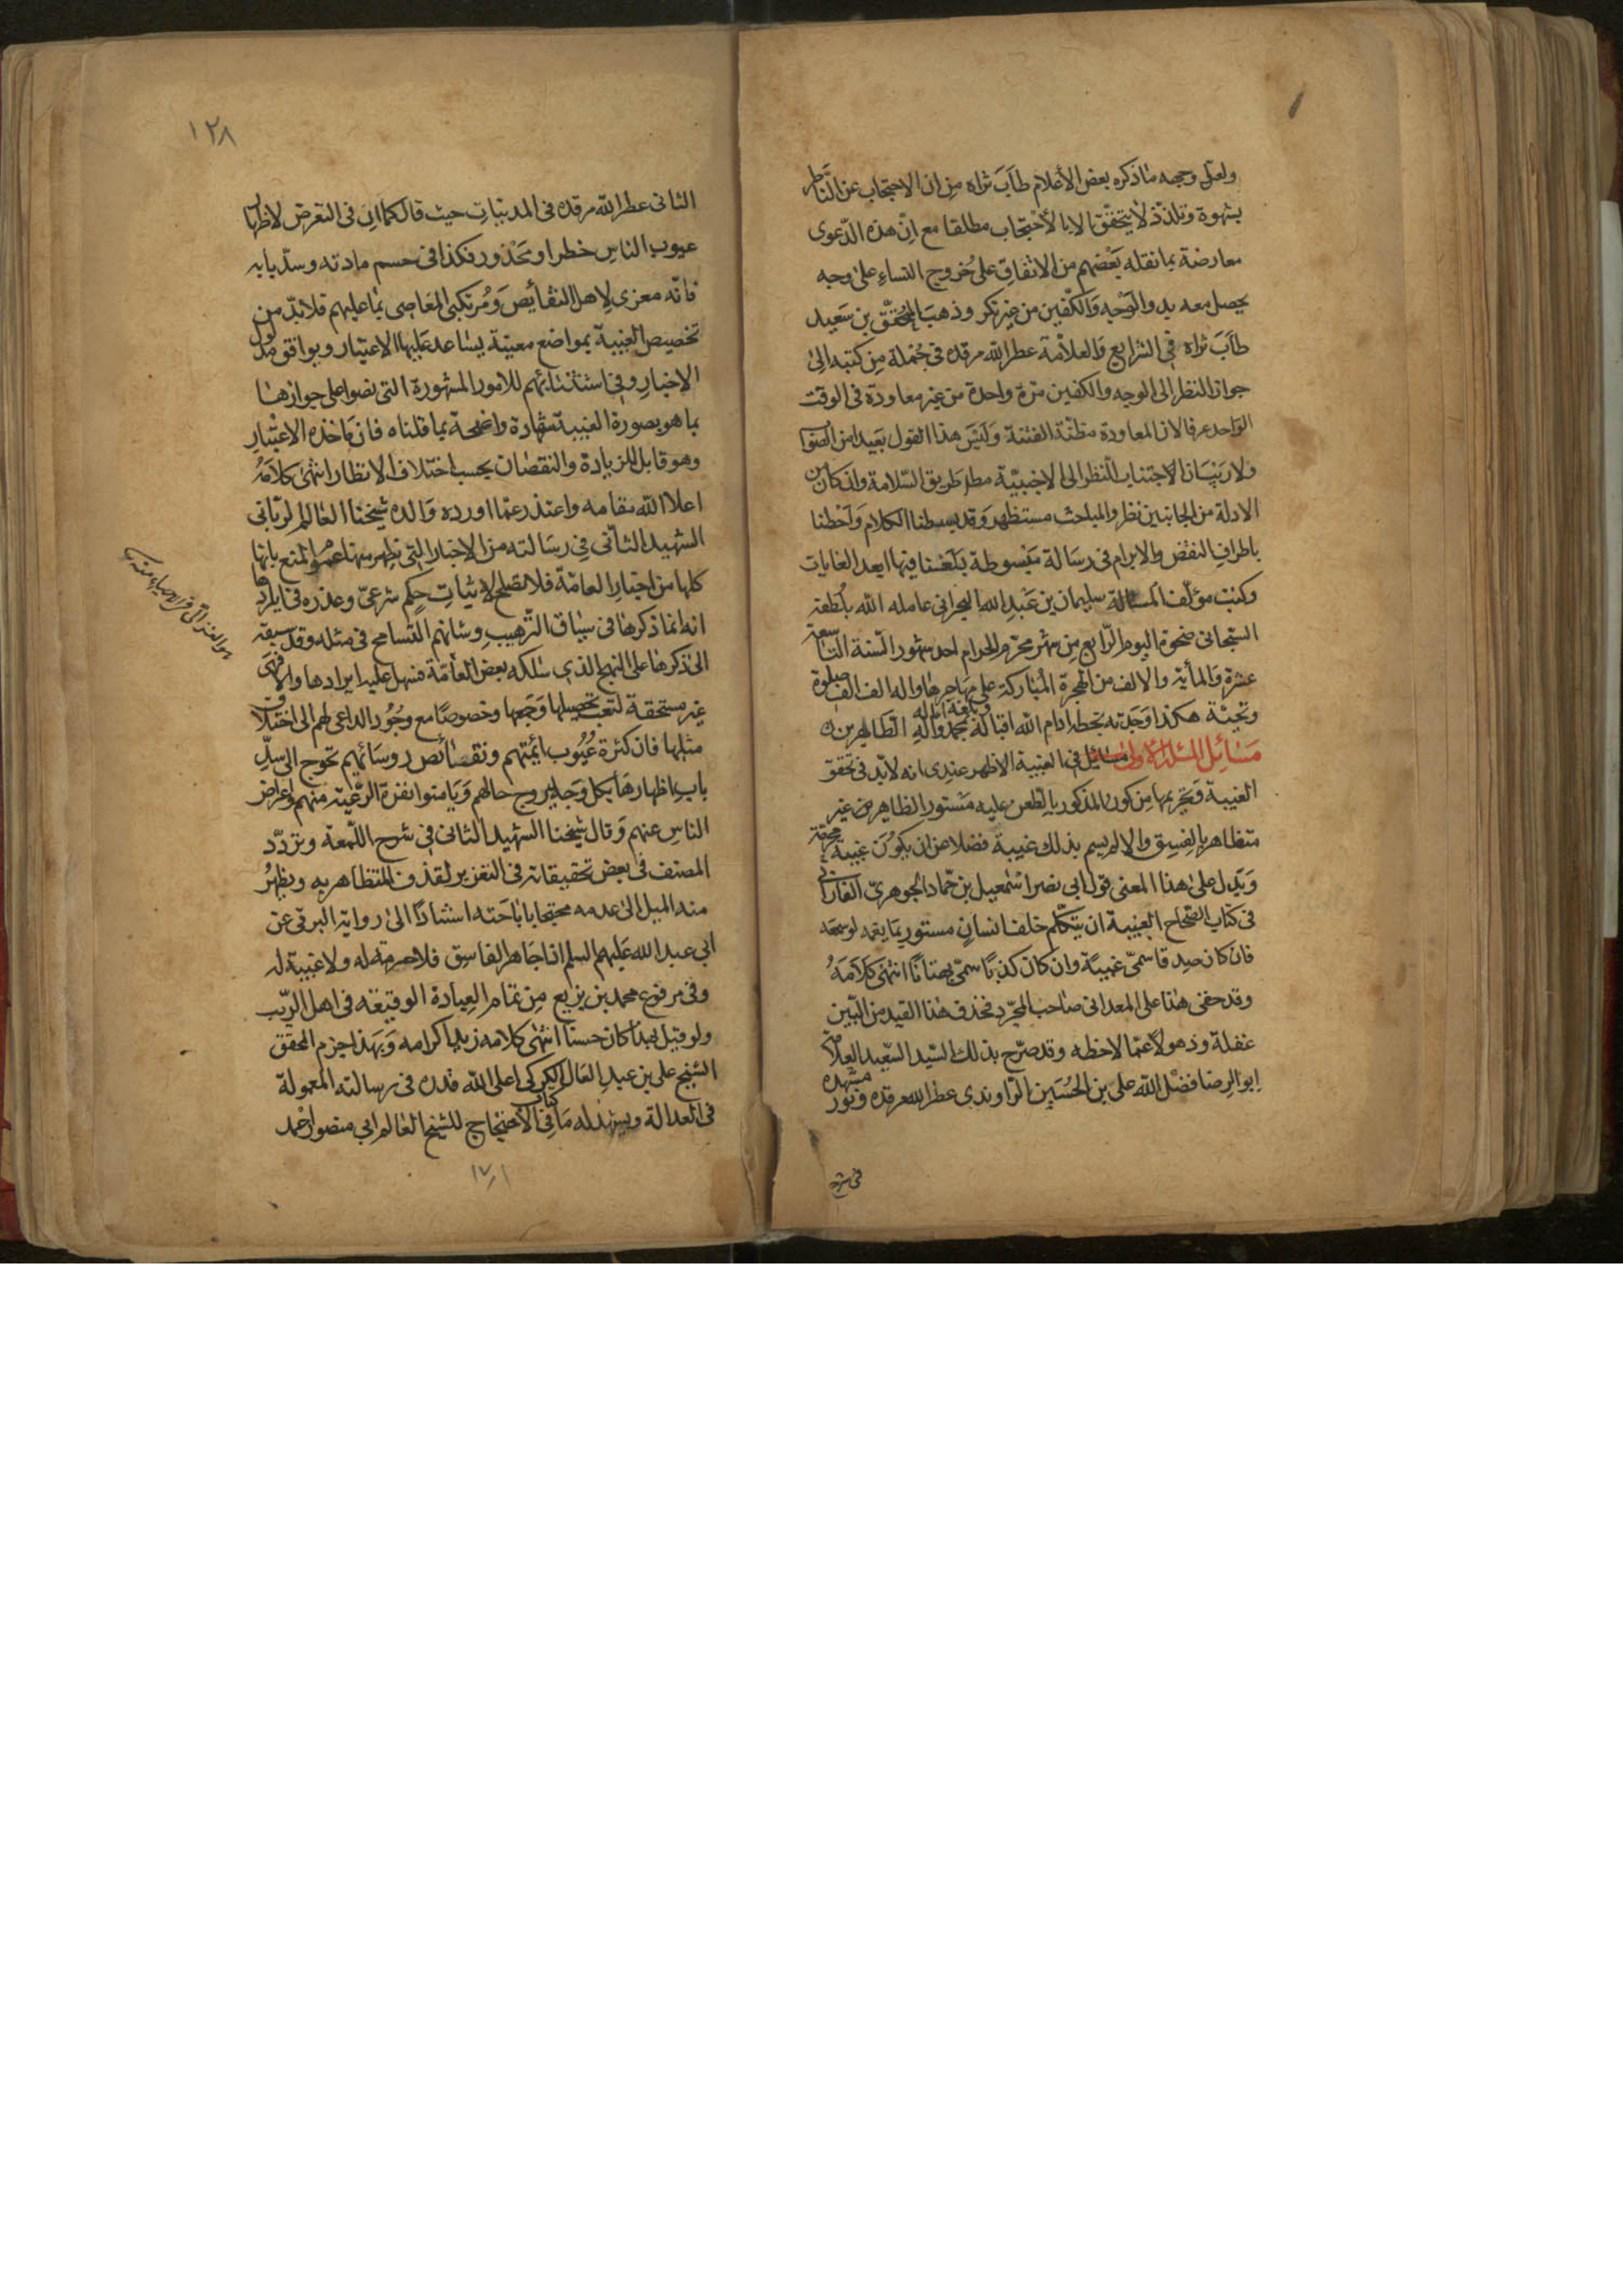 ولعل وجهه ما ذكره بعض الأعلام طاب ثراه من ان الاحتجاب عن الناظر
بشهوة وتلذذ لا يتحقق الا بالاحتجاب مطلقا مع ان هذه الدعوى
معارضة بما نقله بعضهم من الاتفاق على خروج النساء على وجه
يحصل معه بدو الوجه والكفين من غير نكر وذهب المحقق بن سعيد
طاب ثراه في الشرايع والعلامة عطر الله مرقده في جملة من كتبه الى
جواز النظر الى الوجه والكفين مرة واحدة من غير معاودة في الوقت
الواحد عرفا لان المعاودة مظنة الفتنة وليس هذا القول بعيدا من الصواب
ولا ريب ان الاجتناب النظر الى الاجنبية مطلقا طريق السلامة وان كان من
الادلة من الجانبين نظر والمباحث مستظهر وقد بسطنا الكلام واحطنا
باطراف النقض والابرام في رسالة مبسوطة بلغنا فيها ابعد الغايات
وكتب مؤلف المسالة سليمان بن عبد الله البحراني عامله الله بلطفه
السبحاني ضحوة اليوم الرابع من شهر محرم الحرام احد شهور السنة التاسعة
عشرة والمأية والالف من الهجرة المباركة على مهاجرها واله الف الف صلوة
وتحية هكذا وجدته بخطه ادام الله اقباله وبلغه اماله بمحمد واله الطاهرين
مسائل المسئلة الاولى مسائل في الغيبة الاظهر عندى انه لابد في تحقق
الغيبة وتحريمها من كون المذكور بالطعن عليه مستور الظاهر من غير
متظاهر بالفسق والا لم يسم بذلك غيبة فضلا عن ان يكون غيبة محرمة
ويدل على هذا المعنى قول ابي نصر اسمعيل بن حماد الجوهري الفارابي
في كتاب الصحاح الغيبة ان يتكلم خلف انسان مستور بما يغمه لو سمعه
فان كان صدقا سمى غيبة وان كان كذبا سمى بهتانا انتهى كلامه
وقد خفى هذا على المعداني صاحب المجرد فحذف هذا القيد من البين
غفلة وذهولا عما لاحظه وقد صرح بذلك السيد السعيد العلامة
ابو الرضا فضل الله على بن الحسين الراوندى عطر الله مرقده ونور مشهده
في شرح
١٢٨
الثانى عطر الله مرقده فى المدنيات حيث قال كما ان فى التعرض لاظهار
عيوب الناس خطرا ومحذور فكذا فى حسم مادته وسد بابه
فانه مغرى لاهل النقائص ومرتكبى المعاصى بما عليهم فلابد من
تخصيص الغيبة بمواضع معينة يساعد عليها الاعتبار ويوافق مدلول
الاخبار وفى استثنائهم للامور المشهورة التى نصوا على جوازها
بما هو بصورة الغيبة شهادة واضحة بما قلناه فان ماخذه الاعتبار
وهو قابل للزيادة والنقصان بحسب اختلاف الانظار انتهى كلامه
اعلا الله مقامه واعتذر عما اورده والده شيخنا العالم الربانى
الشهيد الثانى فى رسالته من الاخبار التى يظهر منها عموم المنع بانها
كلها من اخبار العامة فلا تصلح لاثبات حكم شرعى وعذره فى ايرادها
انه انما ذكرها فى سياق الترهيب وشانهم التسامح فى مثله وقد سبقه
الى ذكرها على النهج الذى سلكه بعض العامة فسهل عليه ايرادها والا فهى
غير مستحقة لتعب تحصيلها وجمعها وخصوصا مع وجود الداعى لهم الى اختلاق
مثلها فان كثرة عيوب ائمتهم ونقصائص روسائهم تحوج الى سد
باب اظهارها بكل وجه ليروج حالهم ويامنوا نفرة الرعية منهم واعراض
الناس عنهم وقال شيخنا الشهيد الثانى فى شرح اللمعة وتردد
المصنف فى بعض تحقيقاته فى التعزير لقذف المتظاهر به ويظهر
منه الميل الى عدمه محتجا باباحته استنادا الى رواية البرقى عن
ابى عبد الله عليهم السلم اذا جاهر الفاسق فلا حرمة له ولا غيبة له
وفى مرفوع محمد بن بزيع من تمام العبادة الوقيعة فى اهل الريب
ولو قيل بهذا كان حسنا انتهى كلامه زيد اكرامه وبهذا جزم المحقق
الشيخ على بن عبد العال الكركى اعلى الله قدره فى رسالته المعمولة
فى العدالة ويشهد له ما فى كتاب الاحتجاج للشيخ العالم ابى منصور احمد